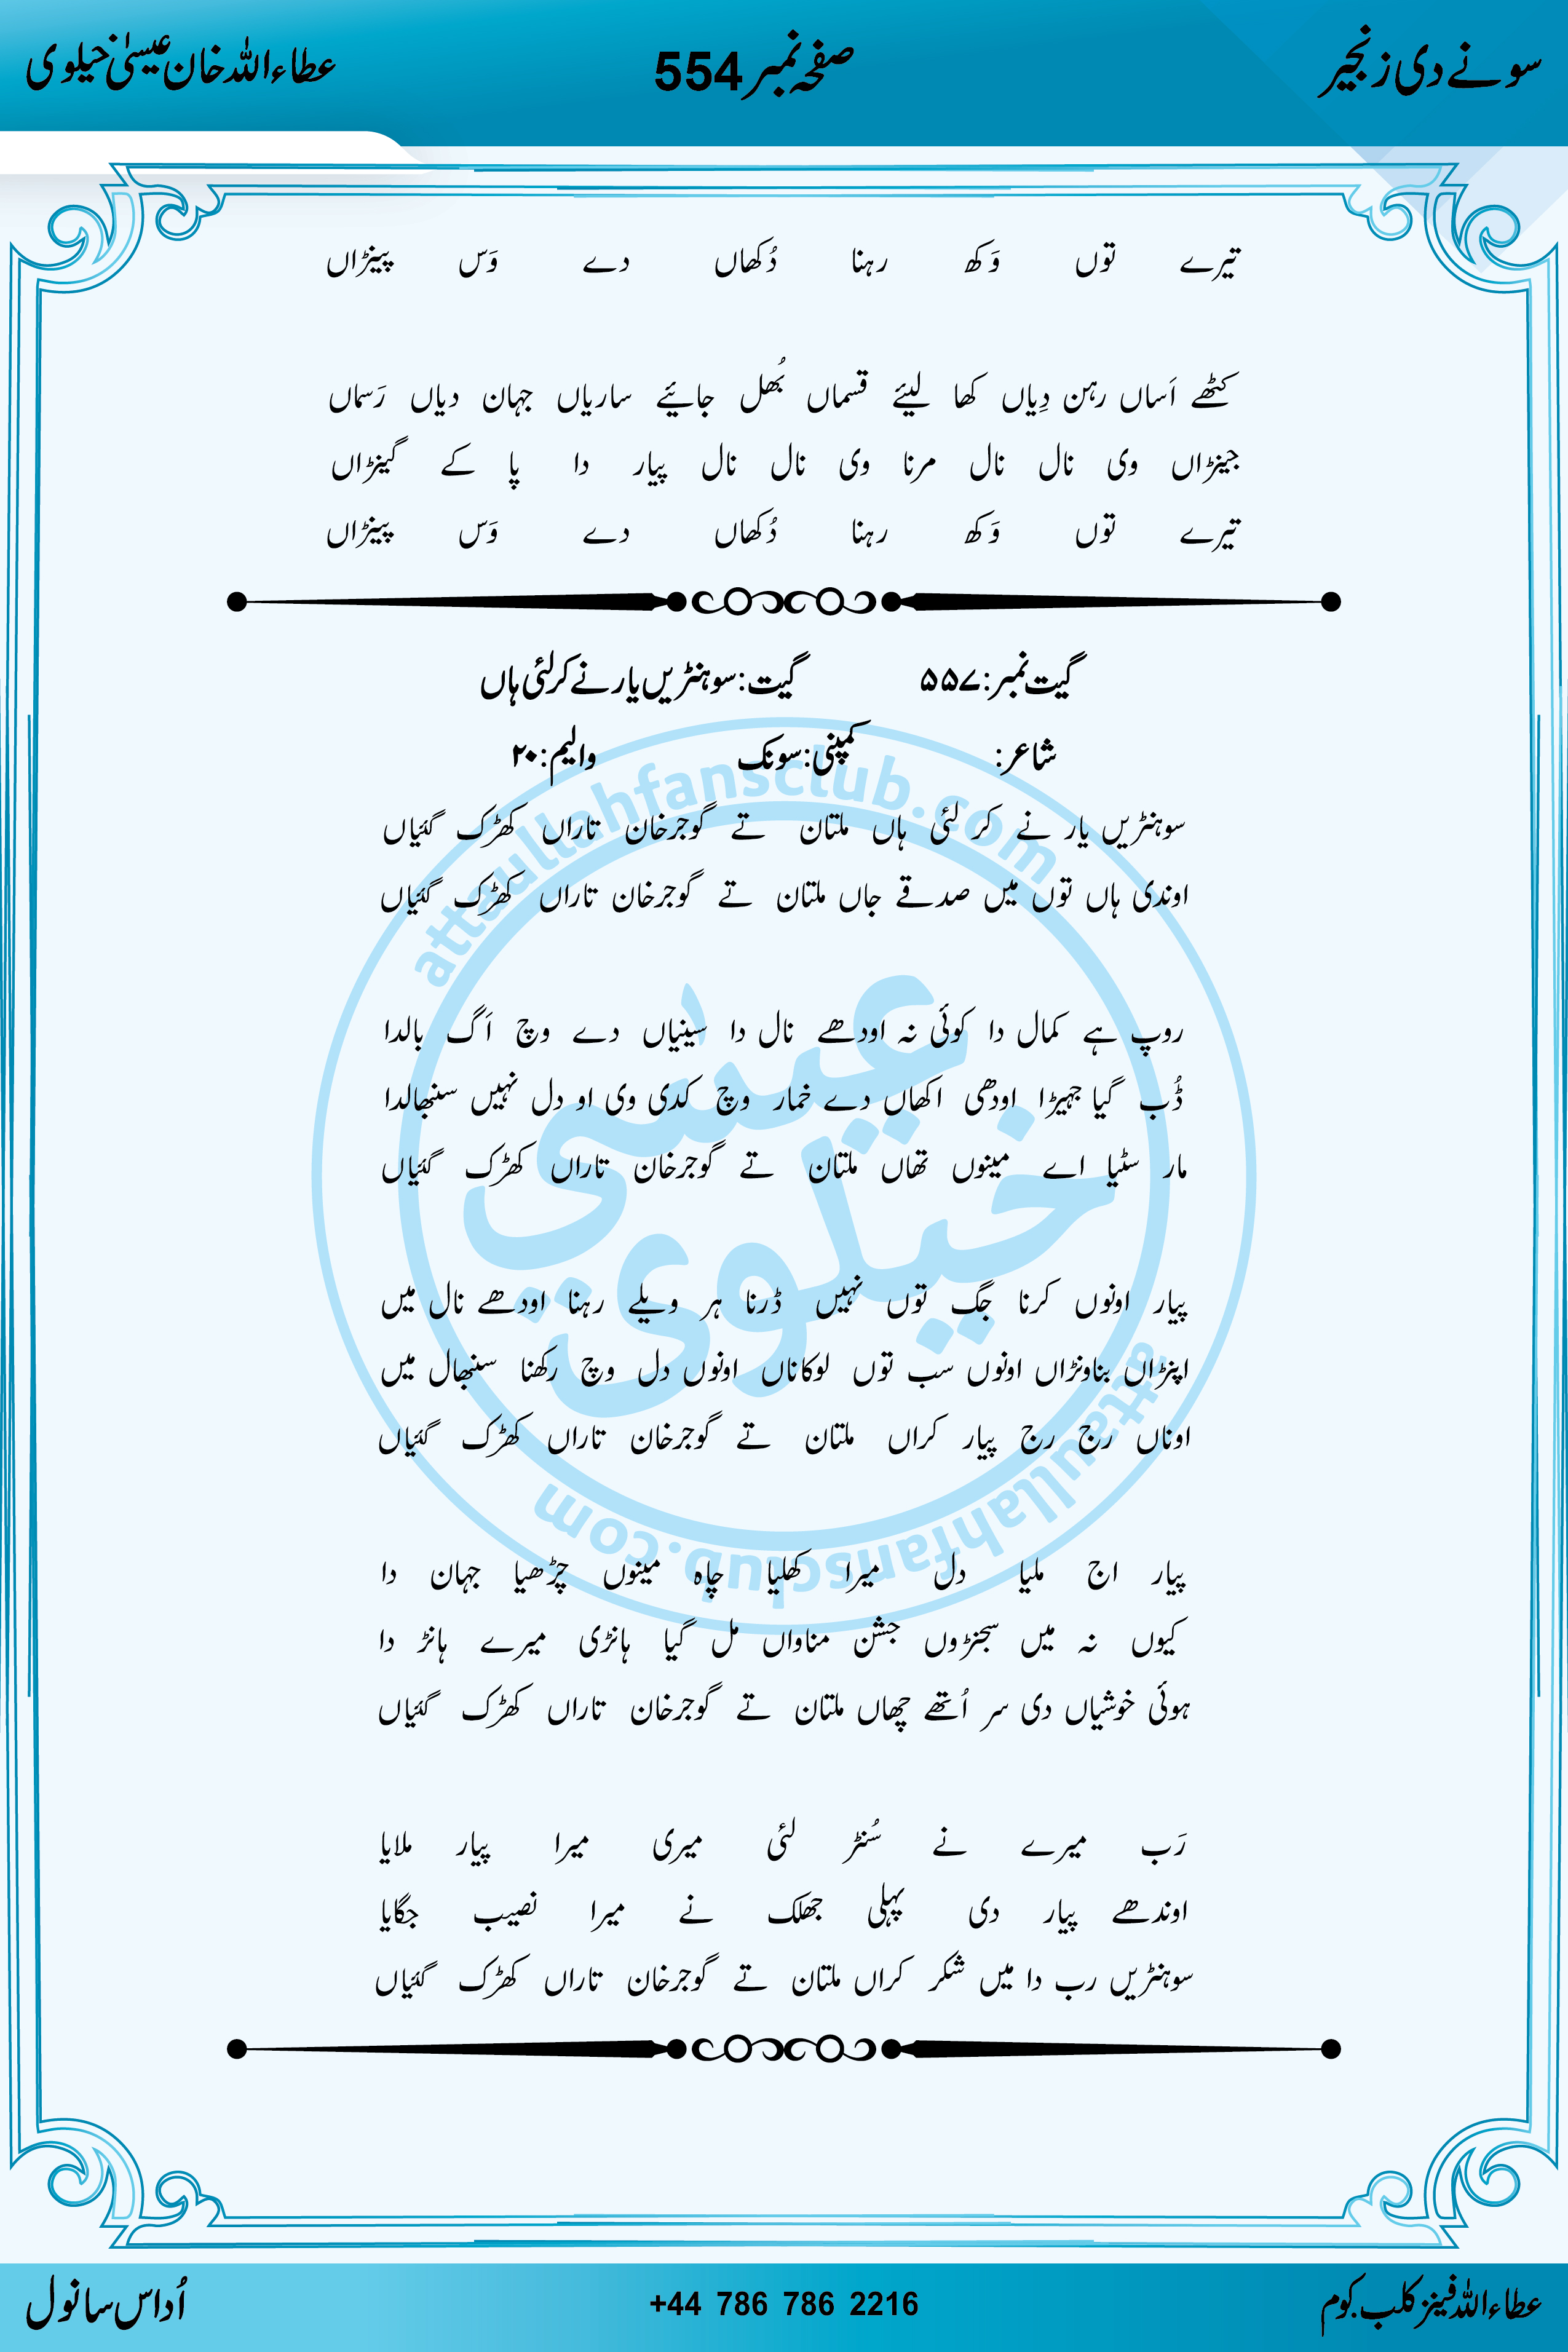 سونے دی زنجیر صفحہ نمبر 554 عطاءاللہ خان عیسیٰ خیلوی
تیرے توں وَکھ رہنا دُکھاں دے وَس پینڑاں
کٹھے اَساں رہن دِیاں کھا لیئے قسماں بُھل جائیے ساریاں جہان دیاں رَسماں
جینڑاں وی نال نال مرنا وی نال نال پیار دا پا کے گینڑاں
تیرے توں وَکھ رہنا دُکھاں دے وَس پینڑاں
گیت نمبر: ۵۵۷ گیت: سوہنڑیں یار نے کر لئی ہاں
شاعر: کمپنی: سونک والیم: ۲۰
سوہنڑیں یار نے کر لئی ہاں ملتان تے گوجرخان تاراں کھڑک گئیاں
اوندی ہاں توں میں صدقے جاں ملتان تے گوجرخان تاراں کھڑک گئیاں
روپ ہے کمال دا کوئی نہ اودھے نال دا سینیاں دے وچ اَگ بالدا
ڈُب گیا جہیڑا اودھی اکھاں دے خمار وچ کدی وی او دل نہیں سنبھالدا
مار سٹیا اے مینوں تھاں ملتان تے گوجرخان تاراں کھڑک گئیاں
پیار اونوں کرنا جگ توں نہیں ڈرنا ہر ویلے رہنا اودھے نال میں
اپنڑاں بناونڑاں اونوں سب توں لوکاناں اونوں دل وچ رکھنا سنبھال میں
اوناں رج رج پیار کراں ملتان تے گوجرخان تاراں کھڑک گئیاں
پیار اج ملیا دل میرا کھلیا چاہ مینوں چڑھیا جہان دا
کیوں نہ میں سجنڑوں جشن مناواں مل گیا ہانڑی میرے ہانڑ دا
ہوئی خوشیاں دی سر اُتھے چھاں ملتان تے گوجرخان تاراں کھڑک گئیاں
رَب میرے نے سُنڑ لئی میری میرا پیار ملایا
اوندھے پیار دی پہلی جھلک نے میرا نصیب جگایا
سوہنڑیں رب دا میں شکر کراں ملتان تے گوجرخان تاراں کھڑک گئیاں
attaullahfansclub.com
عیسٰی
خیلوی
attaullahfansclub.com
عطاءاللہ فینز کلب.کوم +44 786 786 2216 اُداس سانول